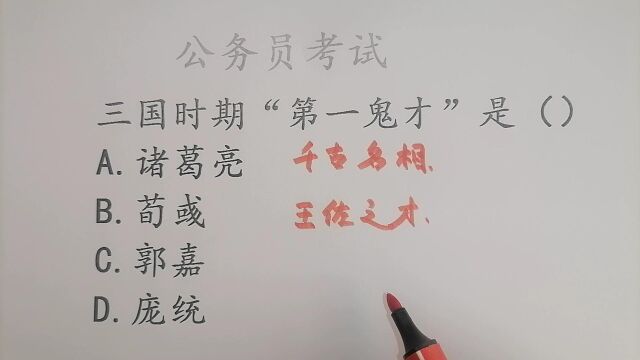 公务员考试
三国时期“第一鬼才”是（）
A.诸葛亮 千古名相、
B.荀彧 王佐之才、
C.郭嘉
D.庞统